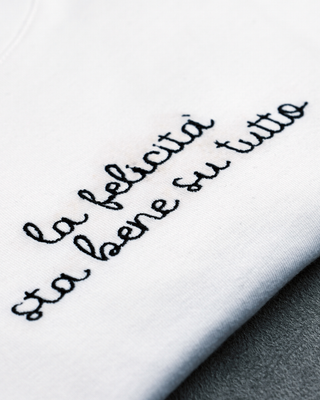 la felicità
sta bene su tutto